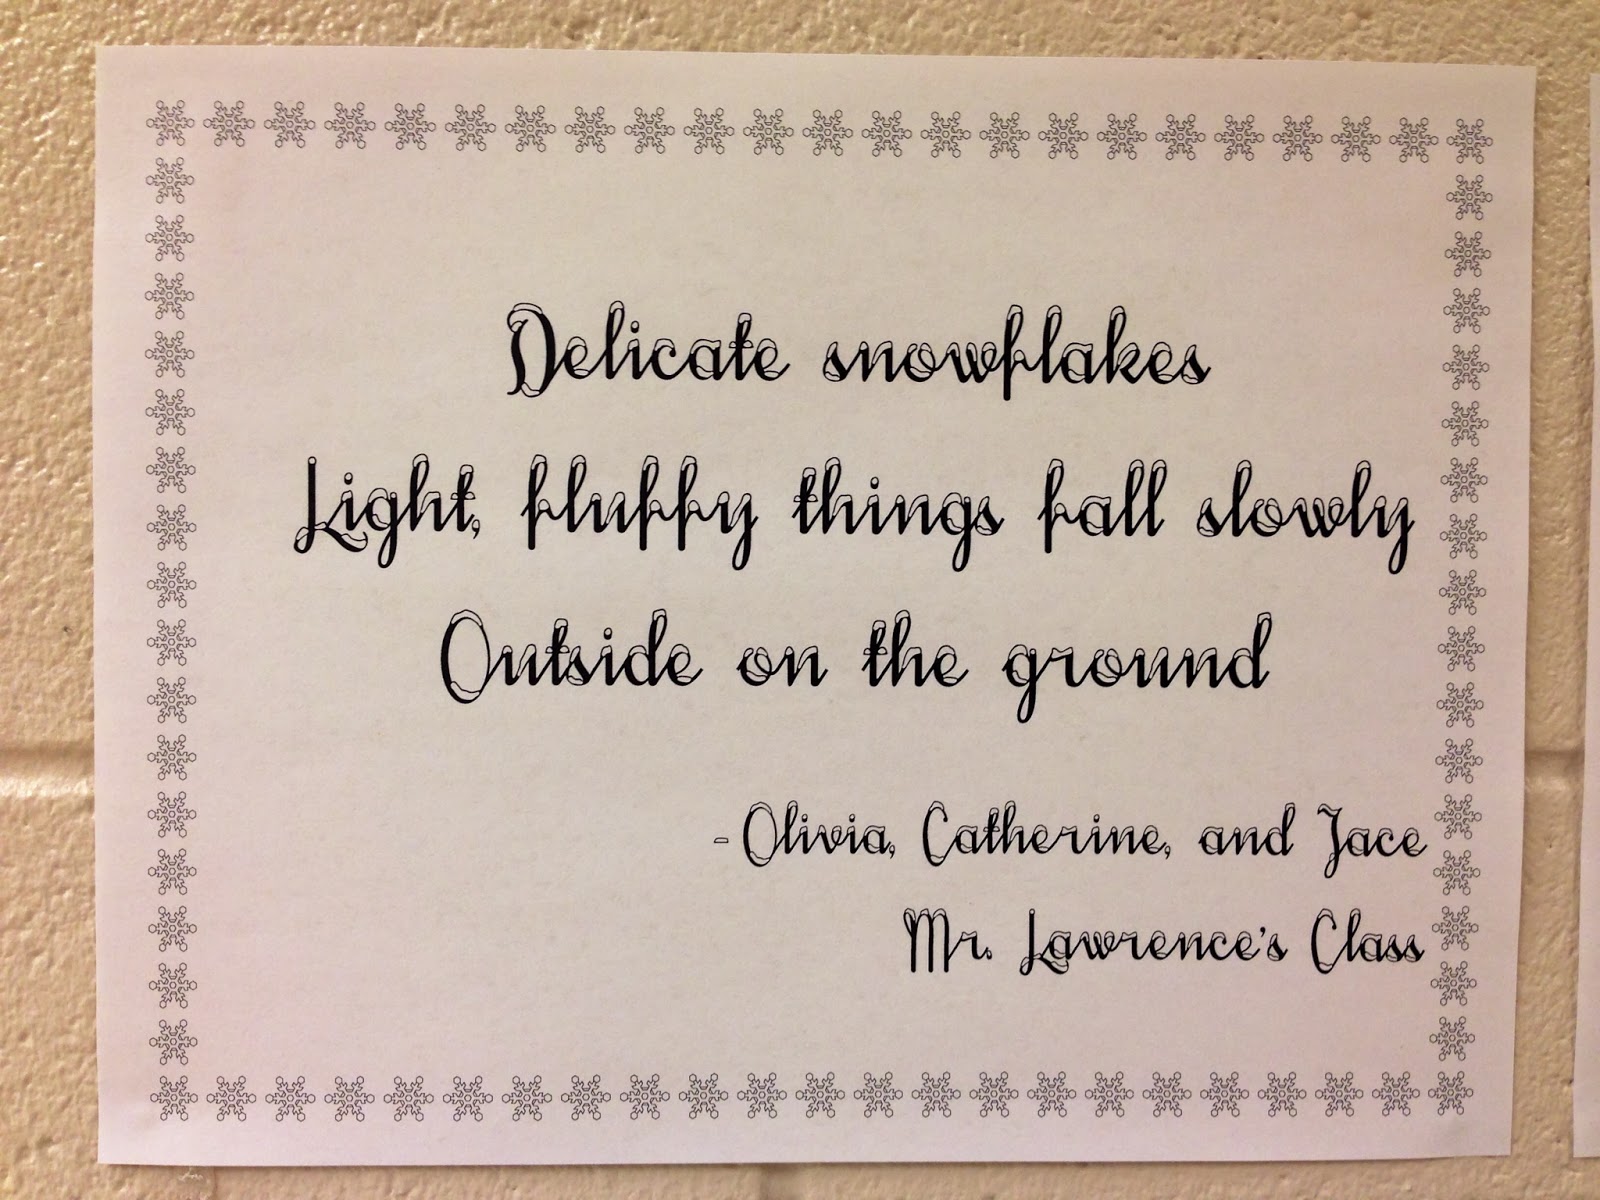 Delicate snowflakes
Light, fluffy things fall slowly
Outside on the ground
- Olivia, Catherine, and Jace
Mr. Lawrence's Class